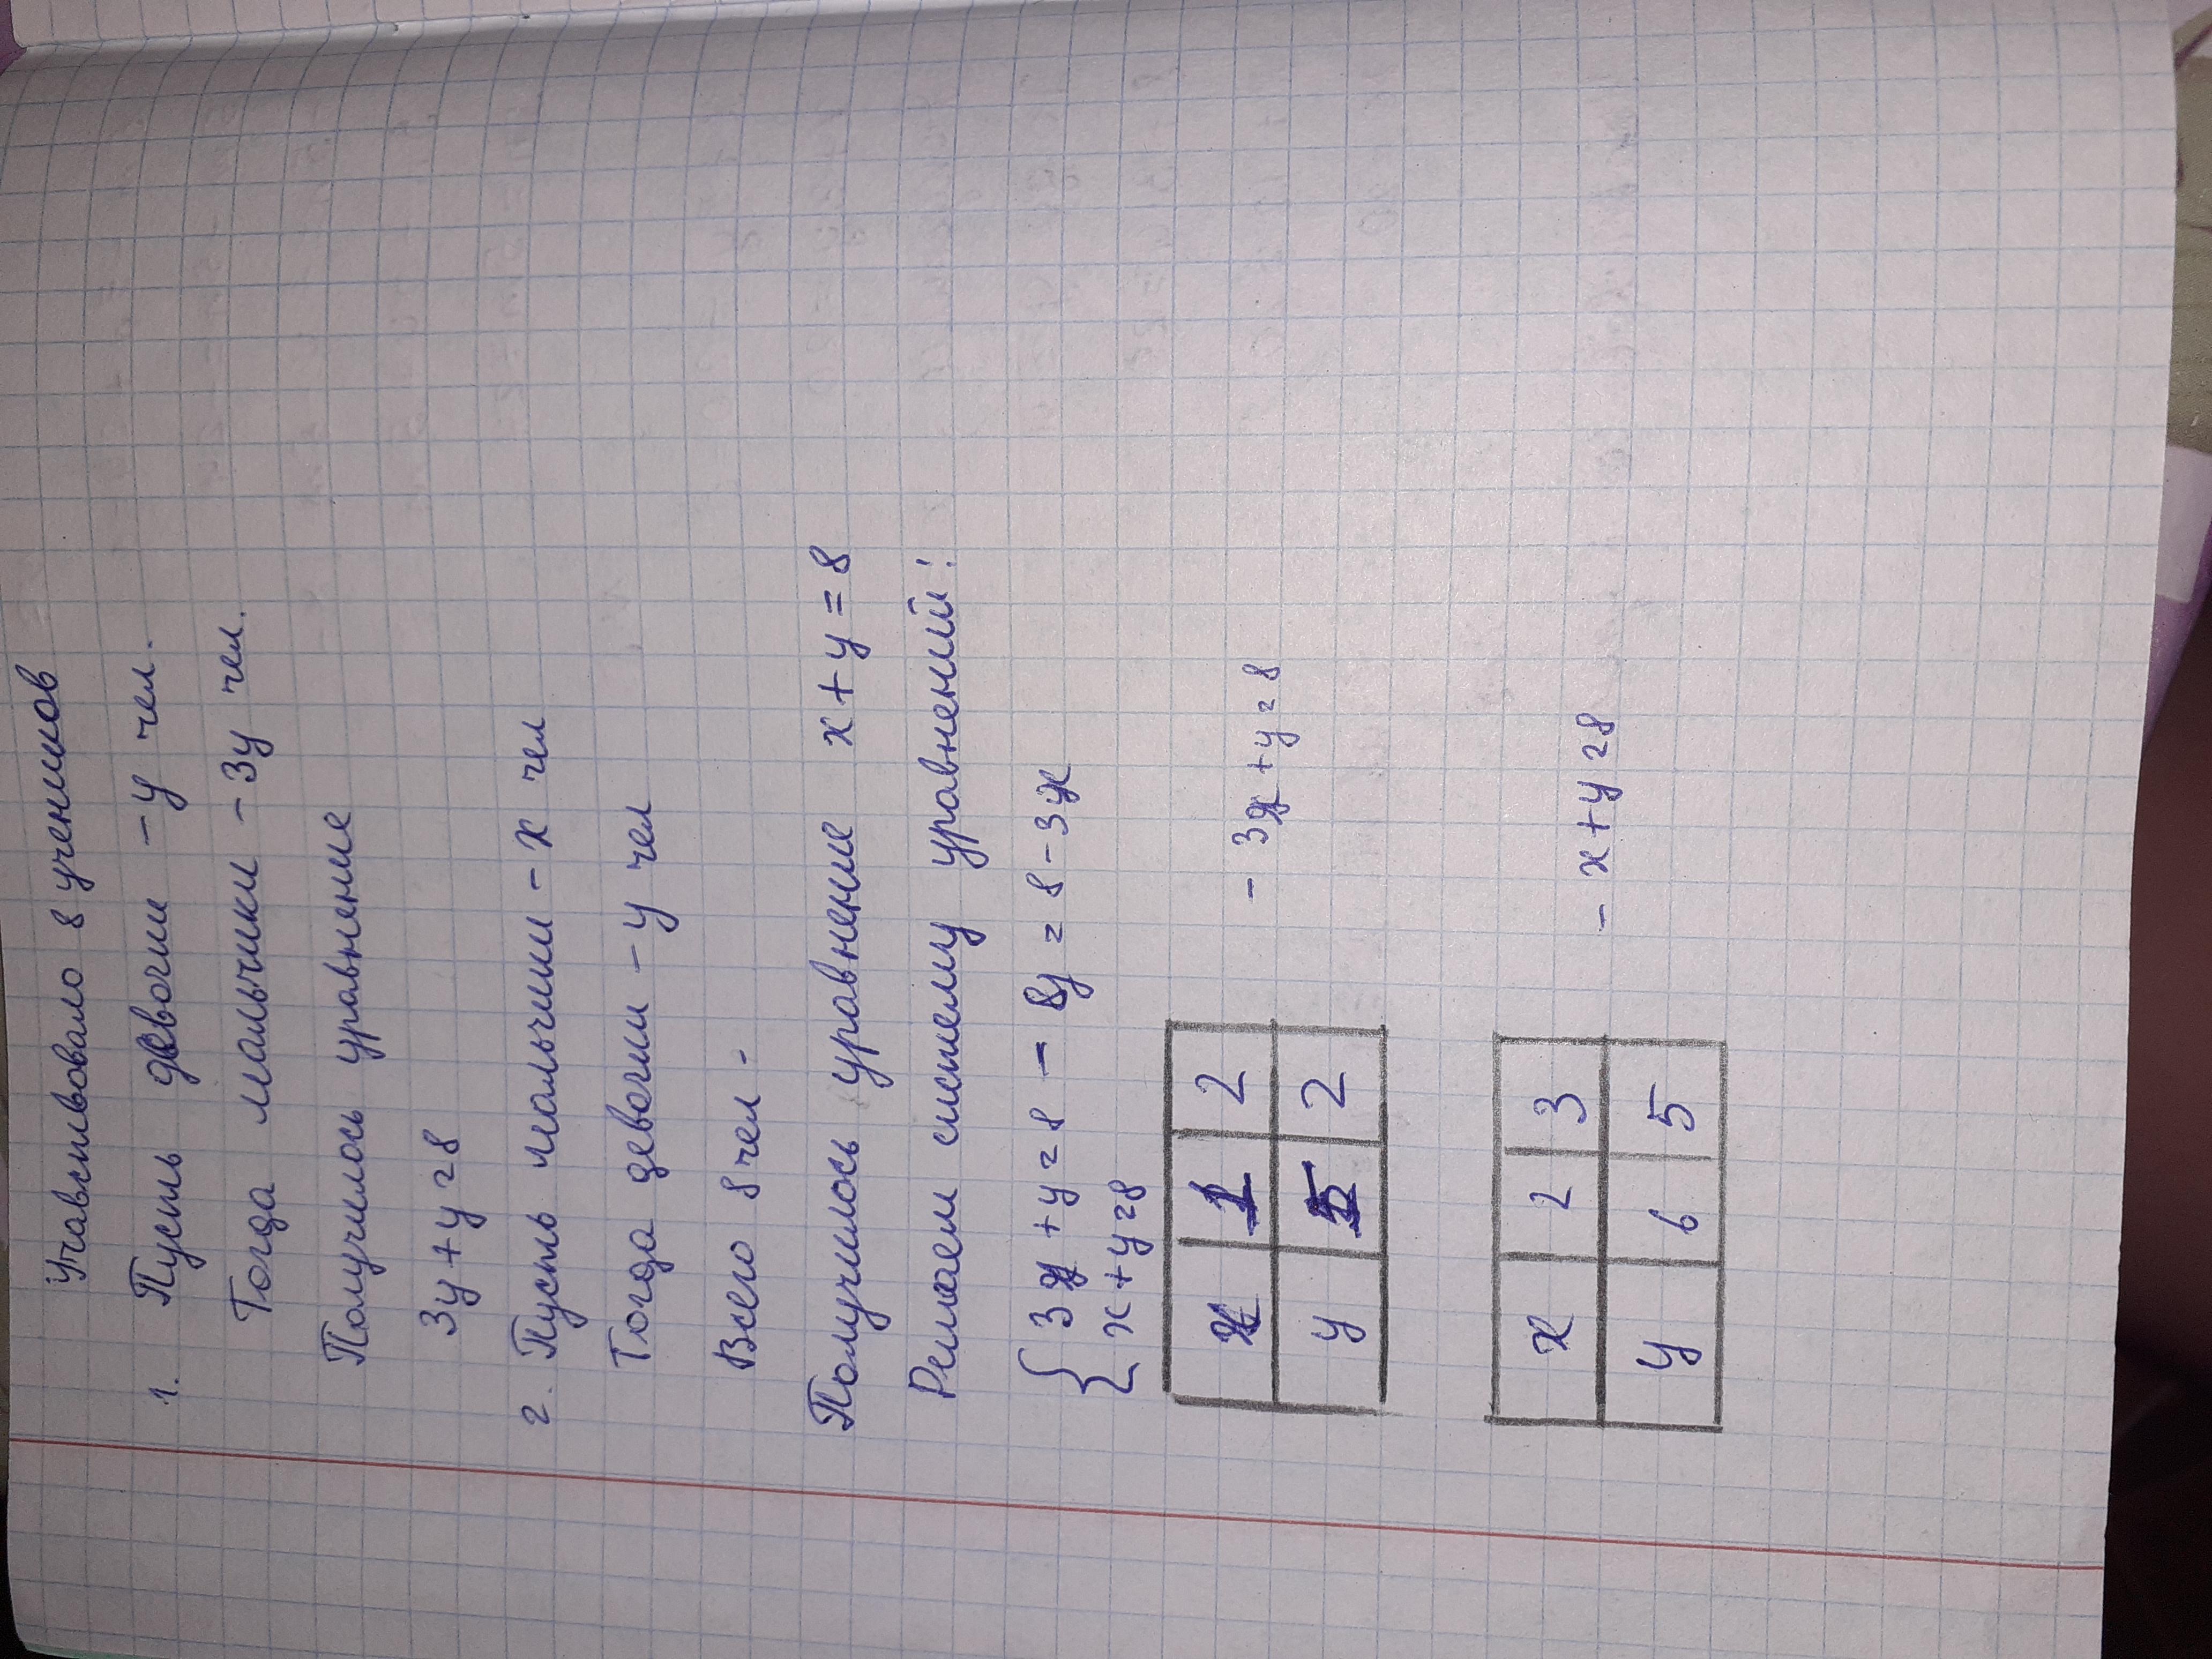 Учавствовало 8 учеников
1. Пусть девочки - у чел.
Тогда мальчики - 3у чел.
Получилось уравнение
3у + у = 8
2. Пусть мальчики - х чел
Тогда девочки - у чел
Всего 8 чел -
Получилось уравнение х + у = 8
Решаем систему уравнений:
{ 3х + у = 8 - у = 8 - 3х
х + у = 8
х 1 2 - 3х + у = 8
у 5 2
х 2 3 - х + у = 8
у 6 5